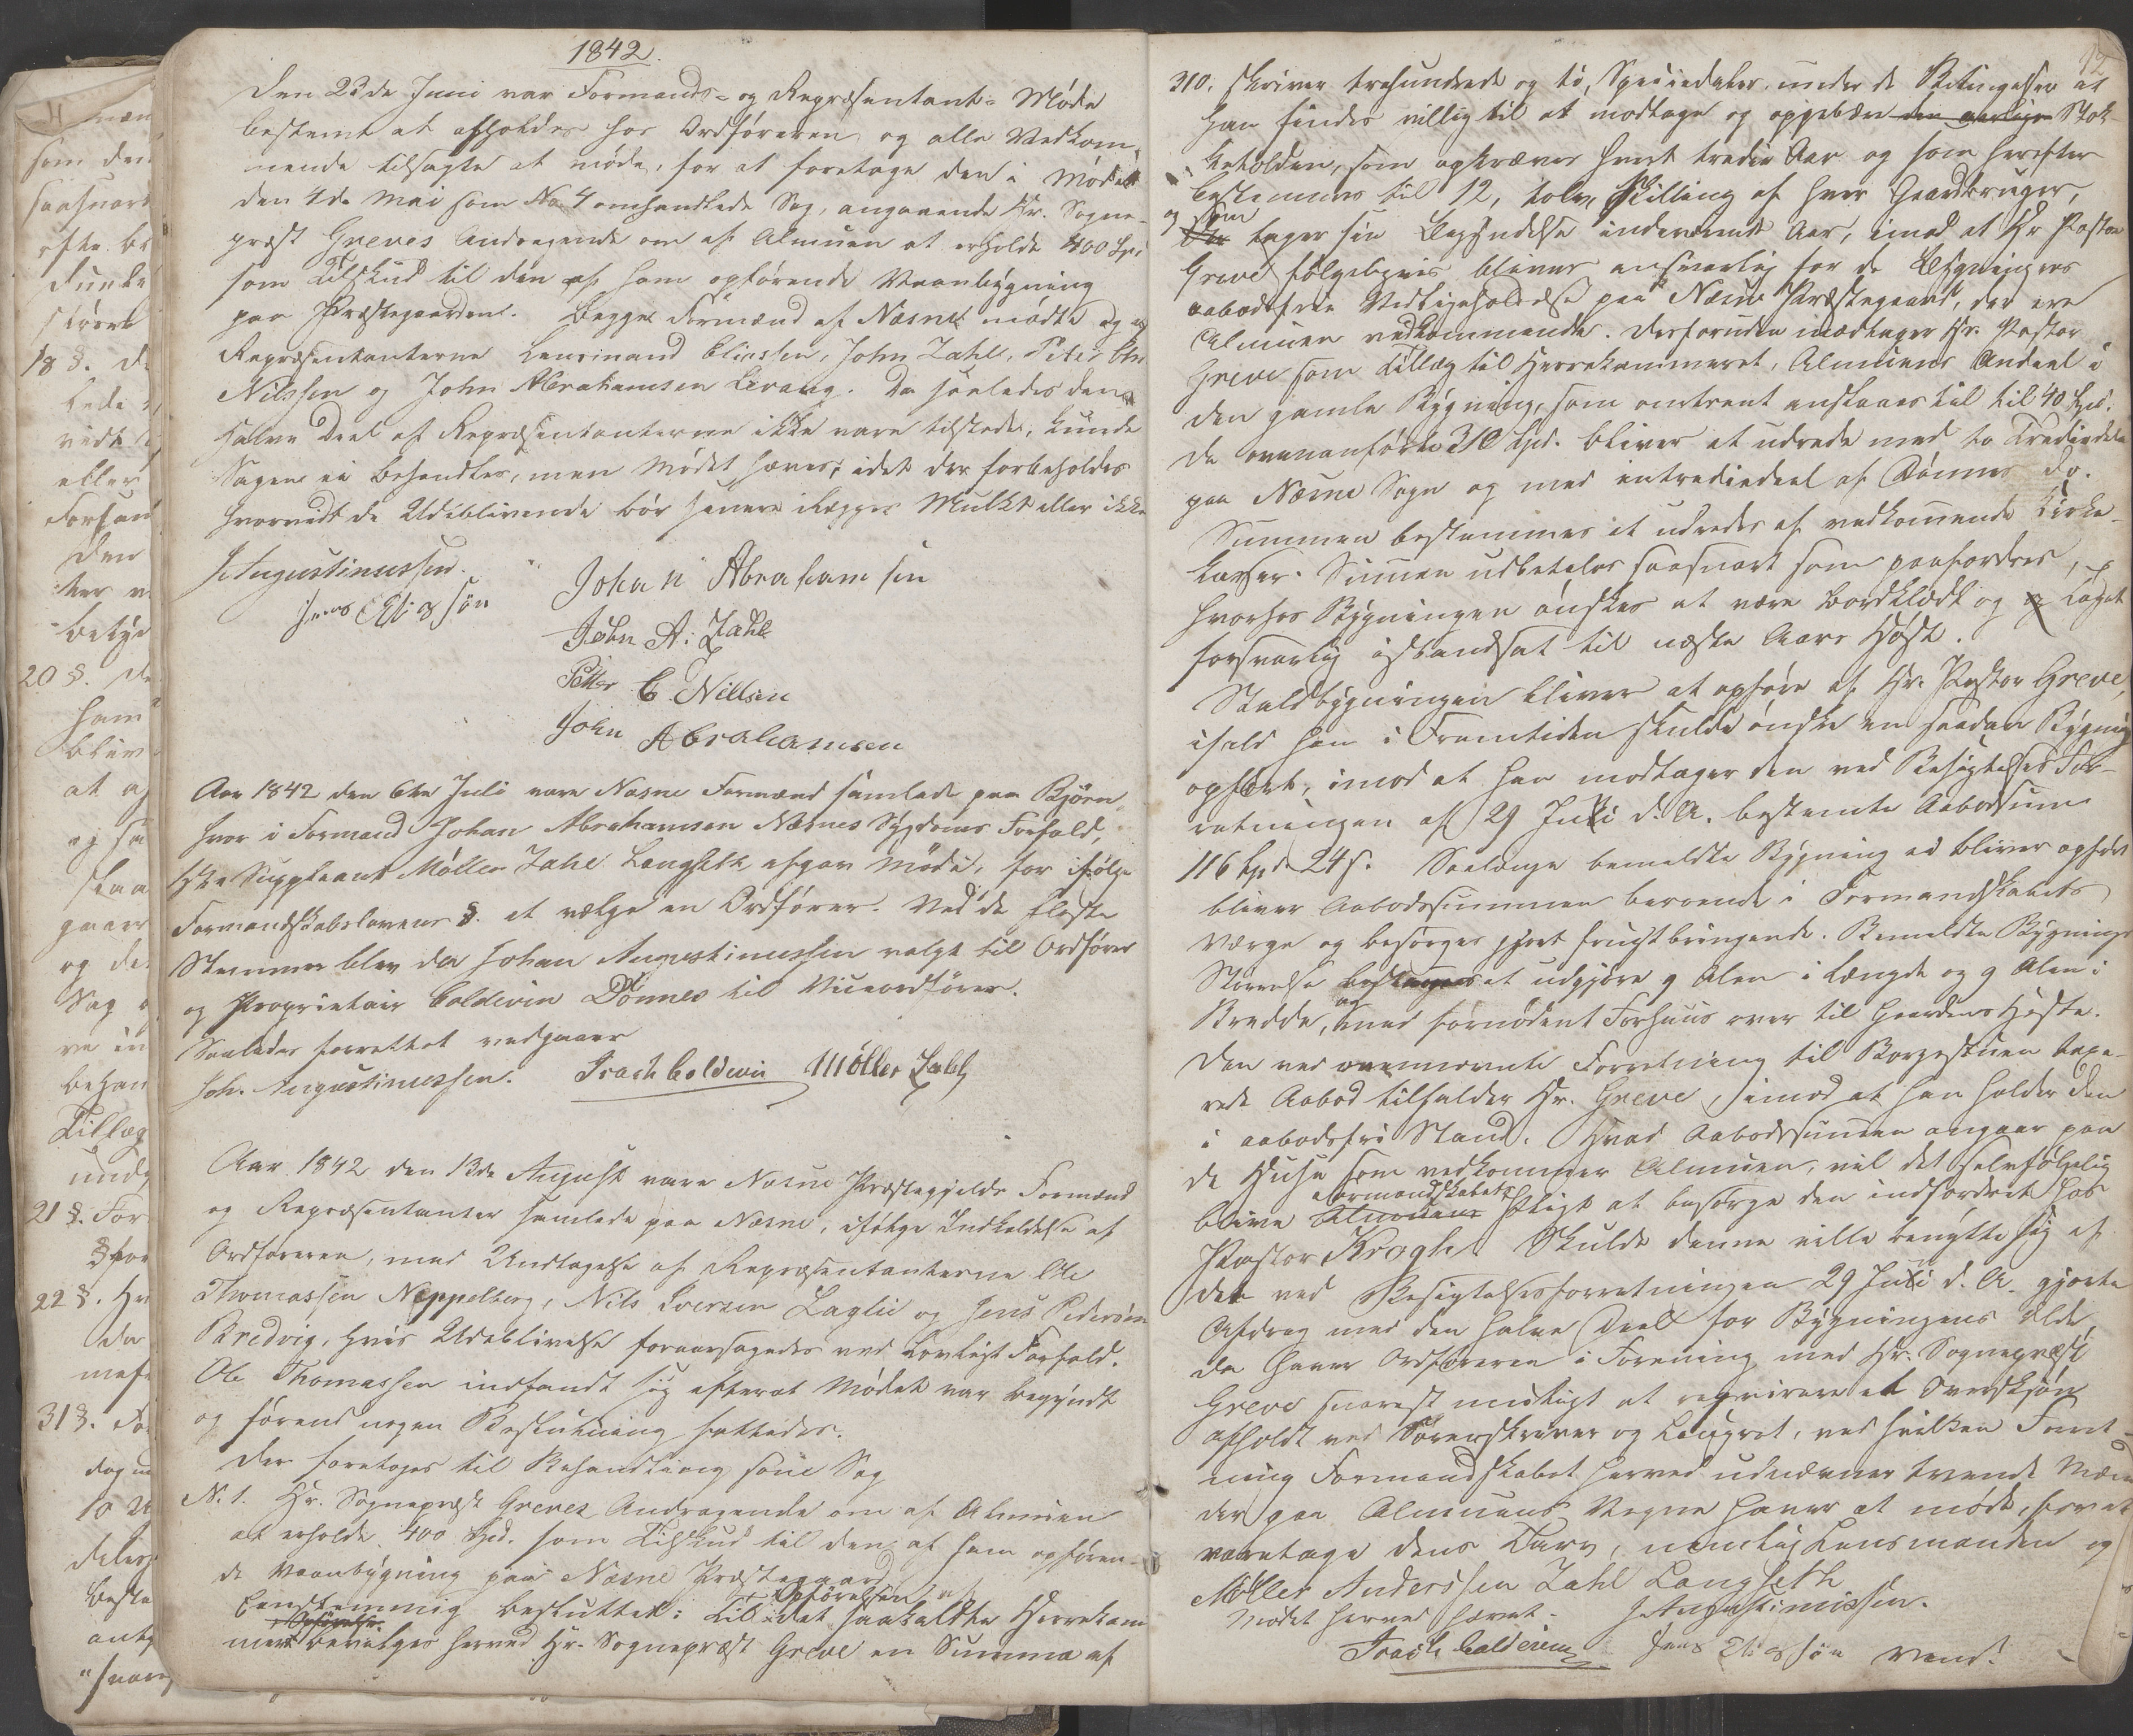 1842.
Den 23de Juni var Formands- og Repræsentant- Møde
bestemt at afholdes hos Ordføreren og alle Vedkom-
mende tilsagte at møde, for at foretage den i Mødet
den 4de Mai som No 4 omhandlede Sag, angaaende Hr. Sogne-
præst Greves Andragende om af Almuen at erholde 400 Spd
som Tilskud til den af ham opførende Vaanbygning
paa Præstegaarden. Begge Formænd af Næsne mødte og af
Repræsentanterne Lensmand Eliassen, John Zahl, Peter Chr
Nilssen og John Abrahamsen Levang. Da saaledes den
halve Deel af Repræsentanterne ikke vare tilstede, kunde
Sagen ei behandles, men Mødet hæves, idet der forbeholdes
hvorvidt de Udeblivende bør senere ilægges Mulkt eller ikke
J. Augustinussen.
Johan Abrahamsen
Jens Eliassøn
John A. Zahl
Petter C. Nillsen
John Abrahamsen
Aar 1842 den 6te Juli vare Næsne Formænd samlede paa Bjørn
hvor i Formand Johan Abrahamsen Næsnes Sygdoms Forfald,
1ste Suppleant Møller Zahl Langseth afgav Møde, for ifølge
Formandskabslovens §. at vælge en Ordfører. Ved de fleste
Stemmer blev da Johan Augustinussen valgt til Ordfører
og Proprietair Coldevin Dønnes til Viceordfører.
Saaledes forrettet vedgaaer
Joh. Augustinussen. Isach Coldevin Møller Zahl
Aar 1842 den 13de August vare Næsne Præstegjelds Formænd
og Repræsentanter samlede paa Næsne, ifølge Indkaldelse af
Ordføreren, med Undtagelse af Repræsentanterne Ole
Thomassen Neppelberg, Nils Iversen Laglie og Jens Pedersøn
Bredvig, hvis Udeblivelse foraarsagedes ved lovligt Forfald.
Ole Thomassen indfandt sig efterat Mødet var begyndt
og førend nogen Beslutning fattedes.
Der foretoges til Behandling som Sag
N. 1. Hr. Sognepræst Greves Andragende om af Almuen
at erholde 400 Spd. som Tilskud til den af ham opføren-
de Vaanbygning paa Næsne Præstegaard
Opførelsen af
Eenstemmig besluttet: Til det saakaldte Herrekam
mer bevilges herved Hr. Sognepræst Greve en Summa af
310. skriver trehundrede og ti, Speciedaler, under de Betingelser at
han findes villig til at modtage og oppebære den aarlige Stok-
keholden, som opkræves hvert tredie Aar og som herefter
bestemmes til 12, tolv, Skilling af hver Gaardbruger,
og som
der tager sin Begyndelse indeværende Aar, imod at Hr Pastor
Greve følgeligvis bliver ansvarlig for de Bygningers
aabodsfrie Vedligeholdelse paa Næsne Præstegaard, der ere
Almuen vedkommende. Desforuden modtager Hr. Pastor
Greve som Tillæg til Herrekammeret, Almuens Andeel i
den gamle Bygning, som omtrent anslaaes til til 40 Spd.
De ovenanførte 310 Spd. bliver at udrede med to Trediedele
paa Næsne Sogn og med entrediedeel af Dønnes do.
Summen bestemmes at udredes af vedkommende Kirke-
kasser. Summen udbetales saasnart som paafordres,
hvorhos Bygningen ønskes at være bordklædt og og Taget
forsvarlig istandsat til næste Aars Høst.
Staldbygningen bliver at opføre af Hr. Pastor Greve,
ifald han i Fremtiden skulde ønske en saadan Bygning
opført, imod at han modtager den ved Besigtelses For-
retningen af 29 Juli d. A. bestemte Aabodssum
116 Spd 24 s. Saalænge bemeldte Bygning ei bliver opført
bliver Aabodssummen beroende i Formandskabets
Værge og besørges gjort frugtbringende. Bemeldte Bygnings
Størrelse bestemmes at udgjøre 9 Alen i Længde og 9 Alen i
Bredde, med fornødent Forhuus over til Gaardens Heste.
Den ved ovennævnte Forretning til Borgestuen taxe-
rede Aabod tilfalder Hr. Greve, imod at han holder den
i aabodsfri Stand. Hvad Aabodssummen angaar paa
de Huse som vedkommer Almuen, vil det selvfølgelig
Formandskabets
blive Almuens Pligt at besørge den indfordret hos
Pastor Krogh. Skulde denne ville benytte sig af
det ved Besigtelsesforretningen 29 Juli d. A. gjorte
Afdrag med den halve Deel for Bygningens Ælde,
da haver Ordføreren i Forening med Hr. Sognepræst
Greve snarest muligt at reqvirere et Overskjøn
afholdt ved Sorenskriver og Laugret, ved hvilken Forret-
ning Formandskabet herved udnævner tvende Mænd
der paa Almuens Vegne haver at møde, for at
varetage dens Tarv, nemlig Lensmanden og
Møller Anderssen Zahl Langseth
Mødet herved hævet. J. Augustinussen.
Isach Coldevin Jens Eliassøn Vend!